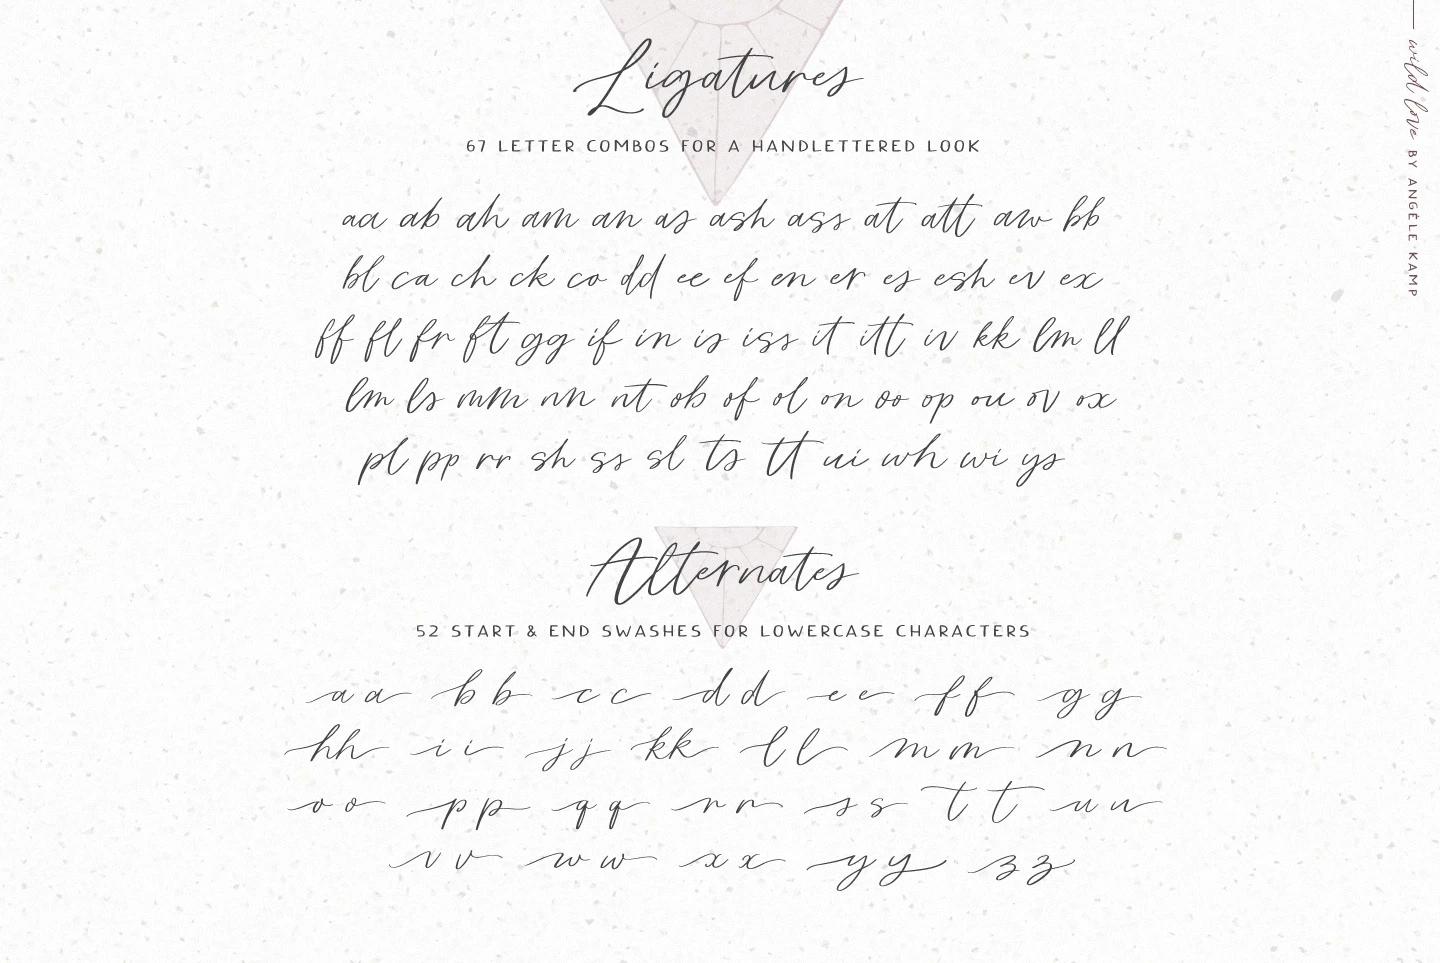 Ligatures
67 LETTER COMBOS FOR A HANDLETTERED LOOK
aa ab ah am an as ash ass at att aw bb
bl ca ch ck co dd ee ef en er es esh ev ex
ff fl fr ft gg if in is iss it itt iv kk lm ll
lm ls mm nn nt ob of ol on oo op ou ov ox
pl pp rr sh ss sl ts tt ui wh wi ys
Alternates
52 START & END SWASHES FOR LOWERCASE CHARACTERS
a a b b c c d d e e f f g g
h h i i j j k k l l m m n n
o o p p q q r r s s t t u u
v v w w x x y y z z
wild love BY ANGÈLE KAMP